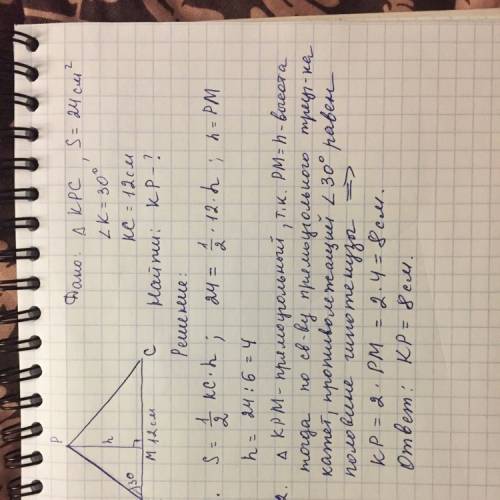 Дано: △ KPC, S = 24 см²
∠K = 30°
KC = 12 см
Найти: KP - ?
P
h
30
M 12 см
C
Решение:
S = 1/2 KC · h ; 24 = 1/2 · 12 · h ; h = PM
h = 24 : 6 = 4
2. △ KPM - прямоугольный, т.к. PM = h - высота
тогда по св-ву прямоугольного треуг-ка
катет, противолежащий ∠ 30° равен
половине гипотенузы =>
KP = 2 · PM = 2 · 4 = 8 см.
Ответ: KP = 8 см.